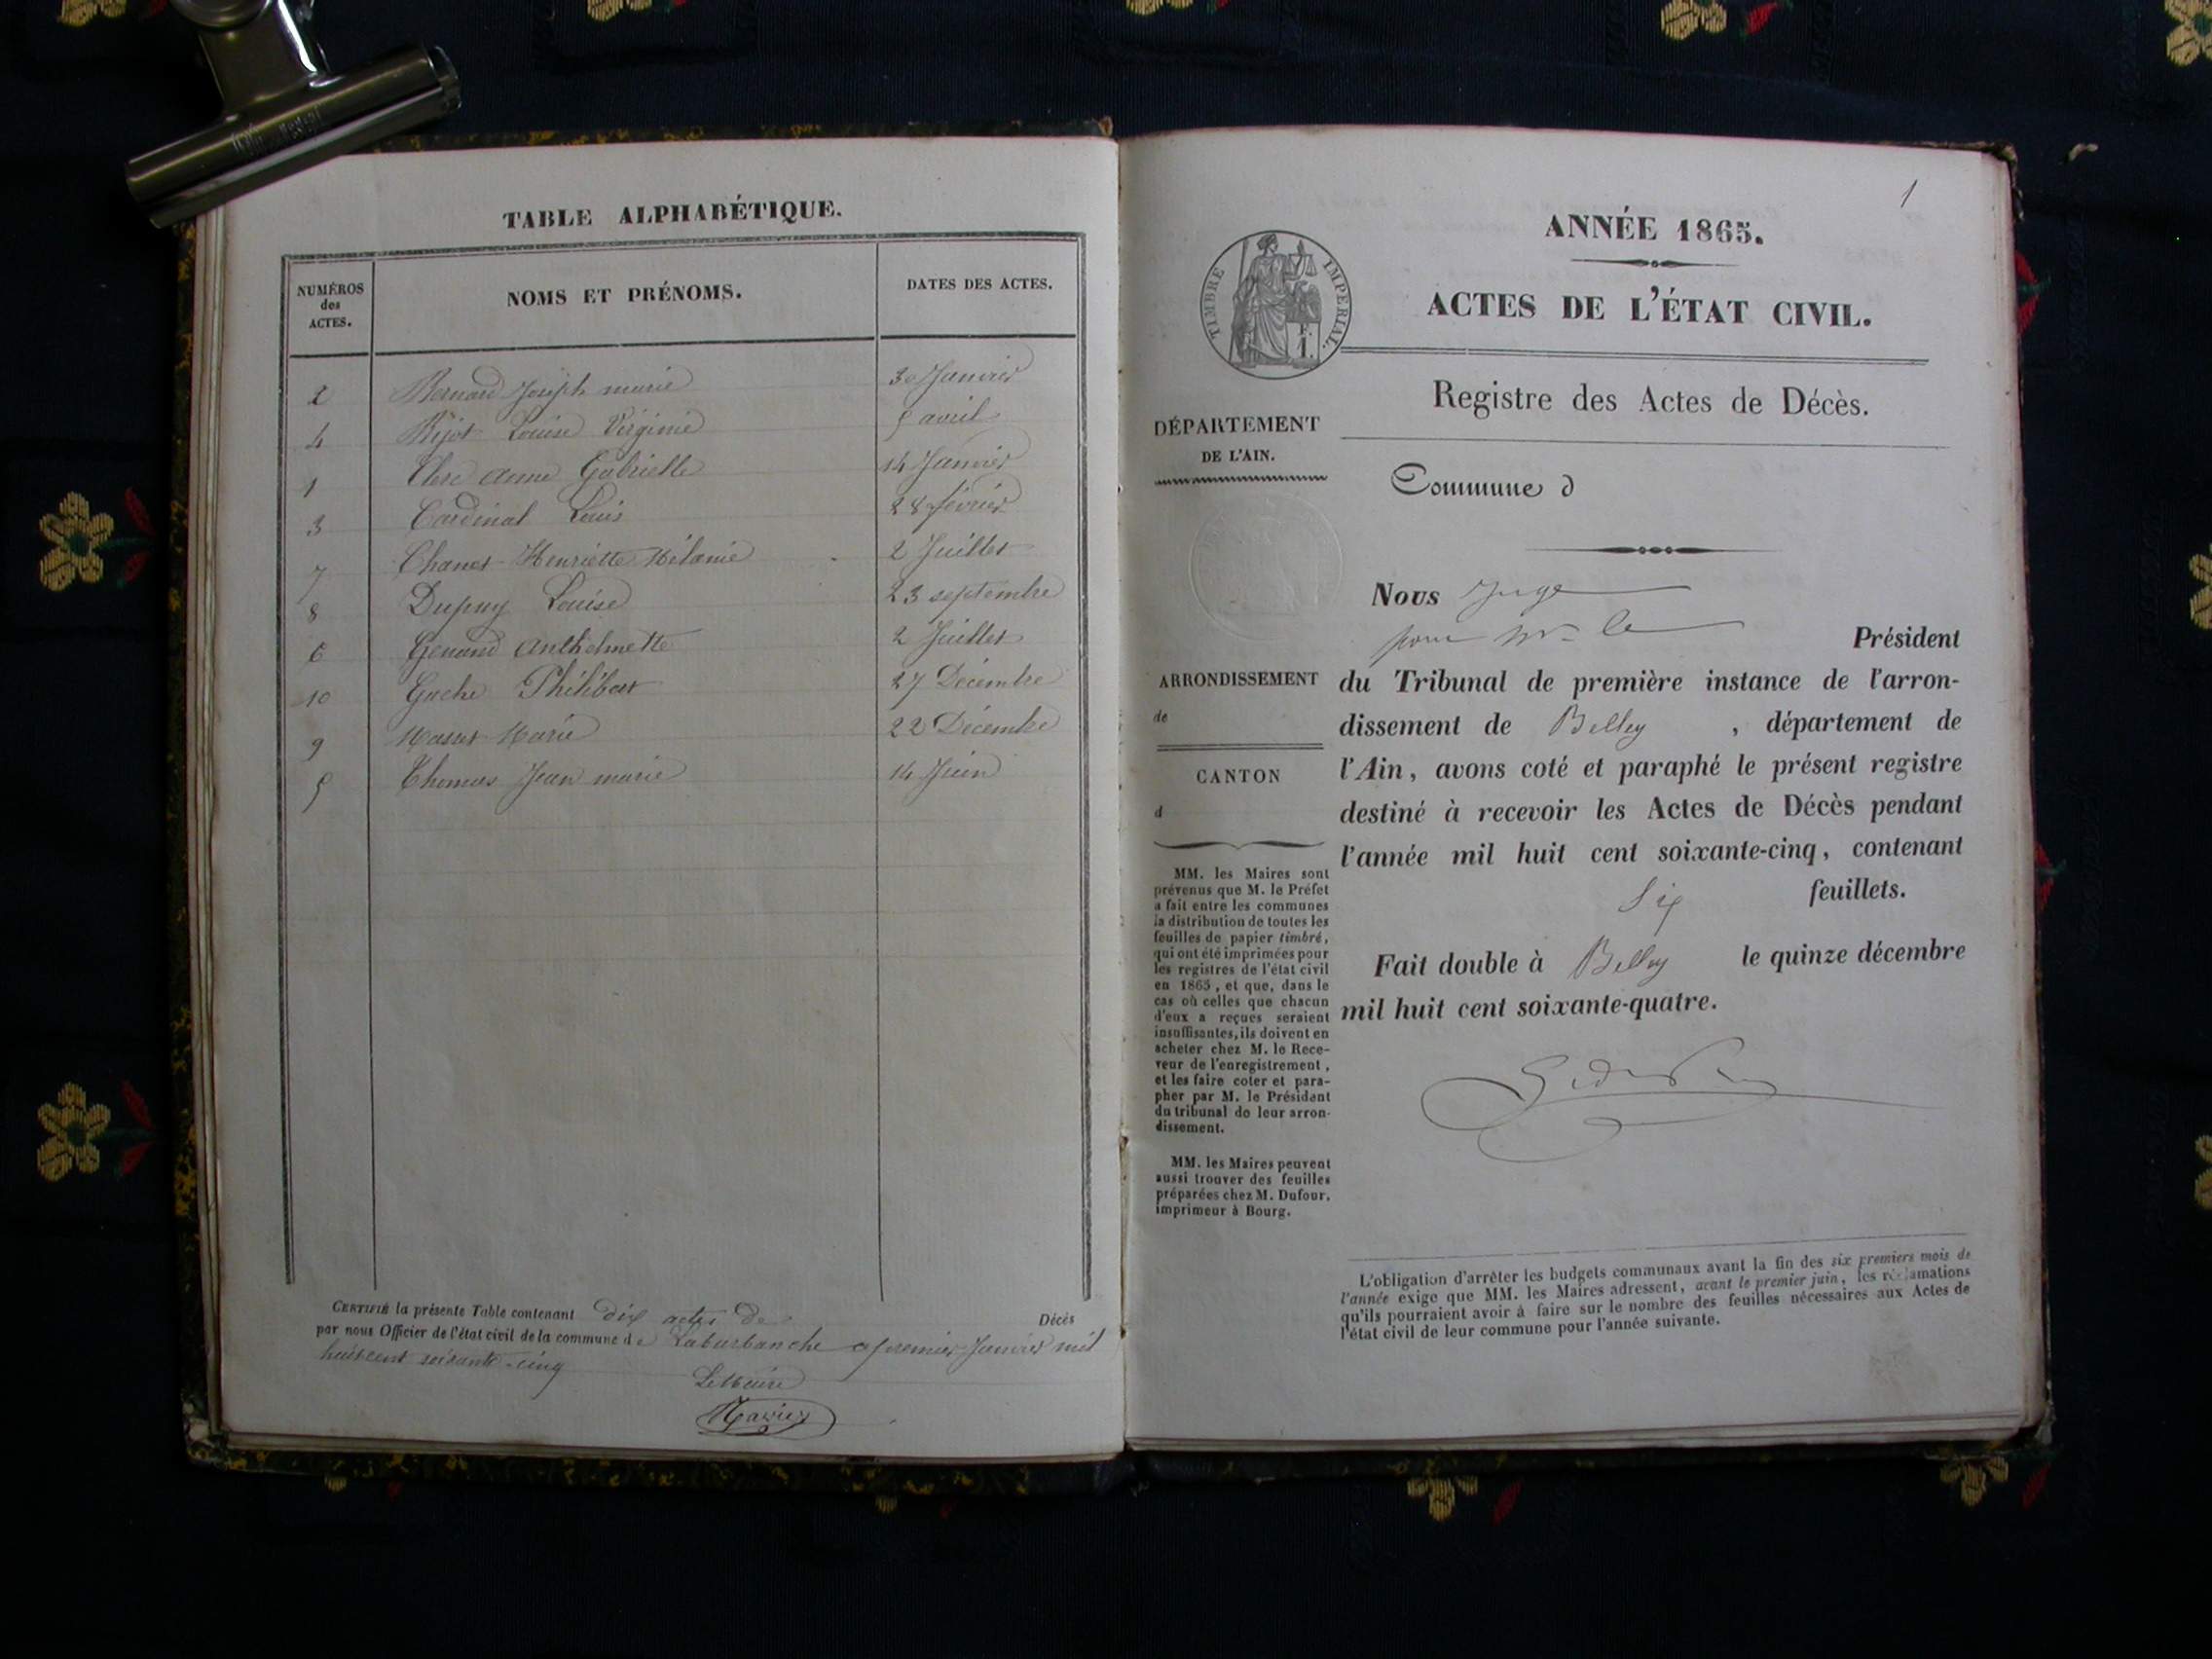 TABLE ALPHABÉTIQUE.
NUMÉROS des ACTES. NOMS ET PRÉNOMS. DATES DES ACTES.
2 Bernard Joseph marie 30 Janvier
4 Bijot Louise Virginie 5 avril
1 Clerc anne Gabrielle 14 Janvier
3 Cardinal Louis 28 février
7 Chanet Henriette Mélanie 2 Juillet
8 Dupuy Louise 23 septembre
6 Genand Anthelmette 2 Juillet
10 Gache Philibert 27 Décembre
9 Masset Marie 22 Décembre
5 Thomas Jean marie 14 Juin
CERTIFIÉ la présente Table contenant dix actes de Décès
par nous Officier de l'état civil de la commune de Laburbanche premier Janvier mil
huit cent soixante-cinq
Le Maire
1
ANNÉE 1865.
ACTES DE L'ÉTAT CIVIL.
TIMBRE IMPERIAL.
Registre des Actes de Décès.
DÉPARTEMENT
DE L'AIN.
Commune d
Nous Juge
pour Mr le Président
ARRONDISSEMENT
de
CANTON
d
du Tribunal de première instance de l'arron-
dissement de Belley , département de
l'Ain, avons coté et paraphé le présent registre
destiné à recevoir les Actes de Décès pendant
l'année mil huit cent soixante-cinq, contenant
Six feuillets.
Fait double à Belley le quinze décembre
mil huit cent soixante-quatre.
MM. les Maires sont
prévenus que M. le Préfet
a fait entre les communes
la distribution de toutes les
feuilles de papier timbré,
qui ont été imprimées pour
les registres de l'état civil
en 1865, et que, dans le
cas où celles que chacun
d'eux a reçues seraient
insuffisantes, ils doivent en
acheter chez M. le Rece-
veur de l'enregistrement,
et les faire coter et para-
pher par M. le Président
du tribunal de leur arron-
dissement.
MM. les Maires peuvent
aussi trouver des feuilles
préparées chez M. Dufour,
imprimeur à Bourg.
L'obligation d'arrêter les budgets communaux avant la fin des six premiers mois de
l'année exige que MM. les Maires adressent, avant le premier juin, les réclamations
qu'ils pourraient avoir à faire sur le nombre des feuilles nécessaires aux Actes de
l'état civil de leur commune pour l'année suivante.